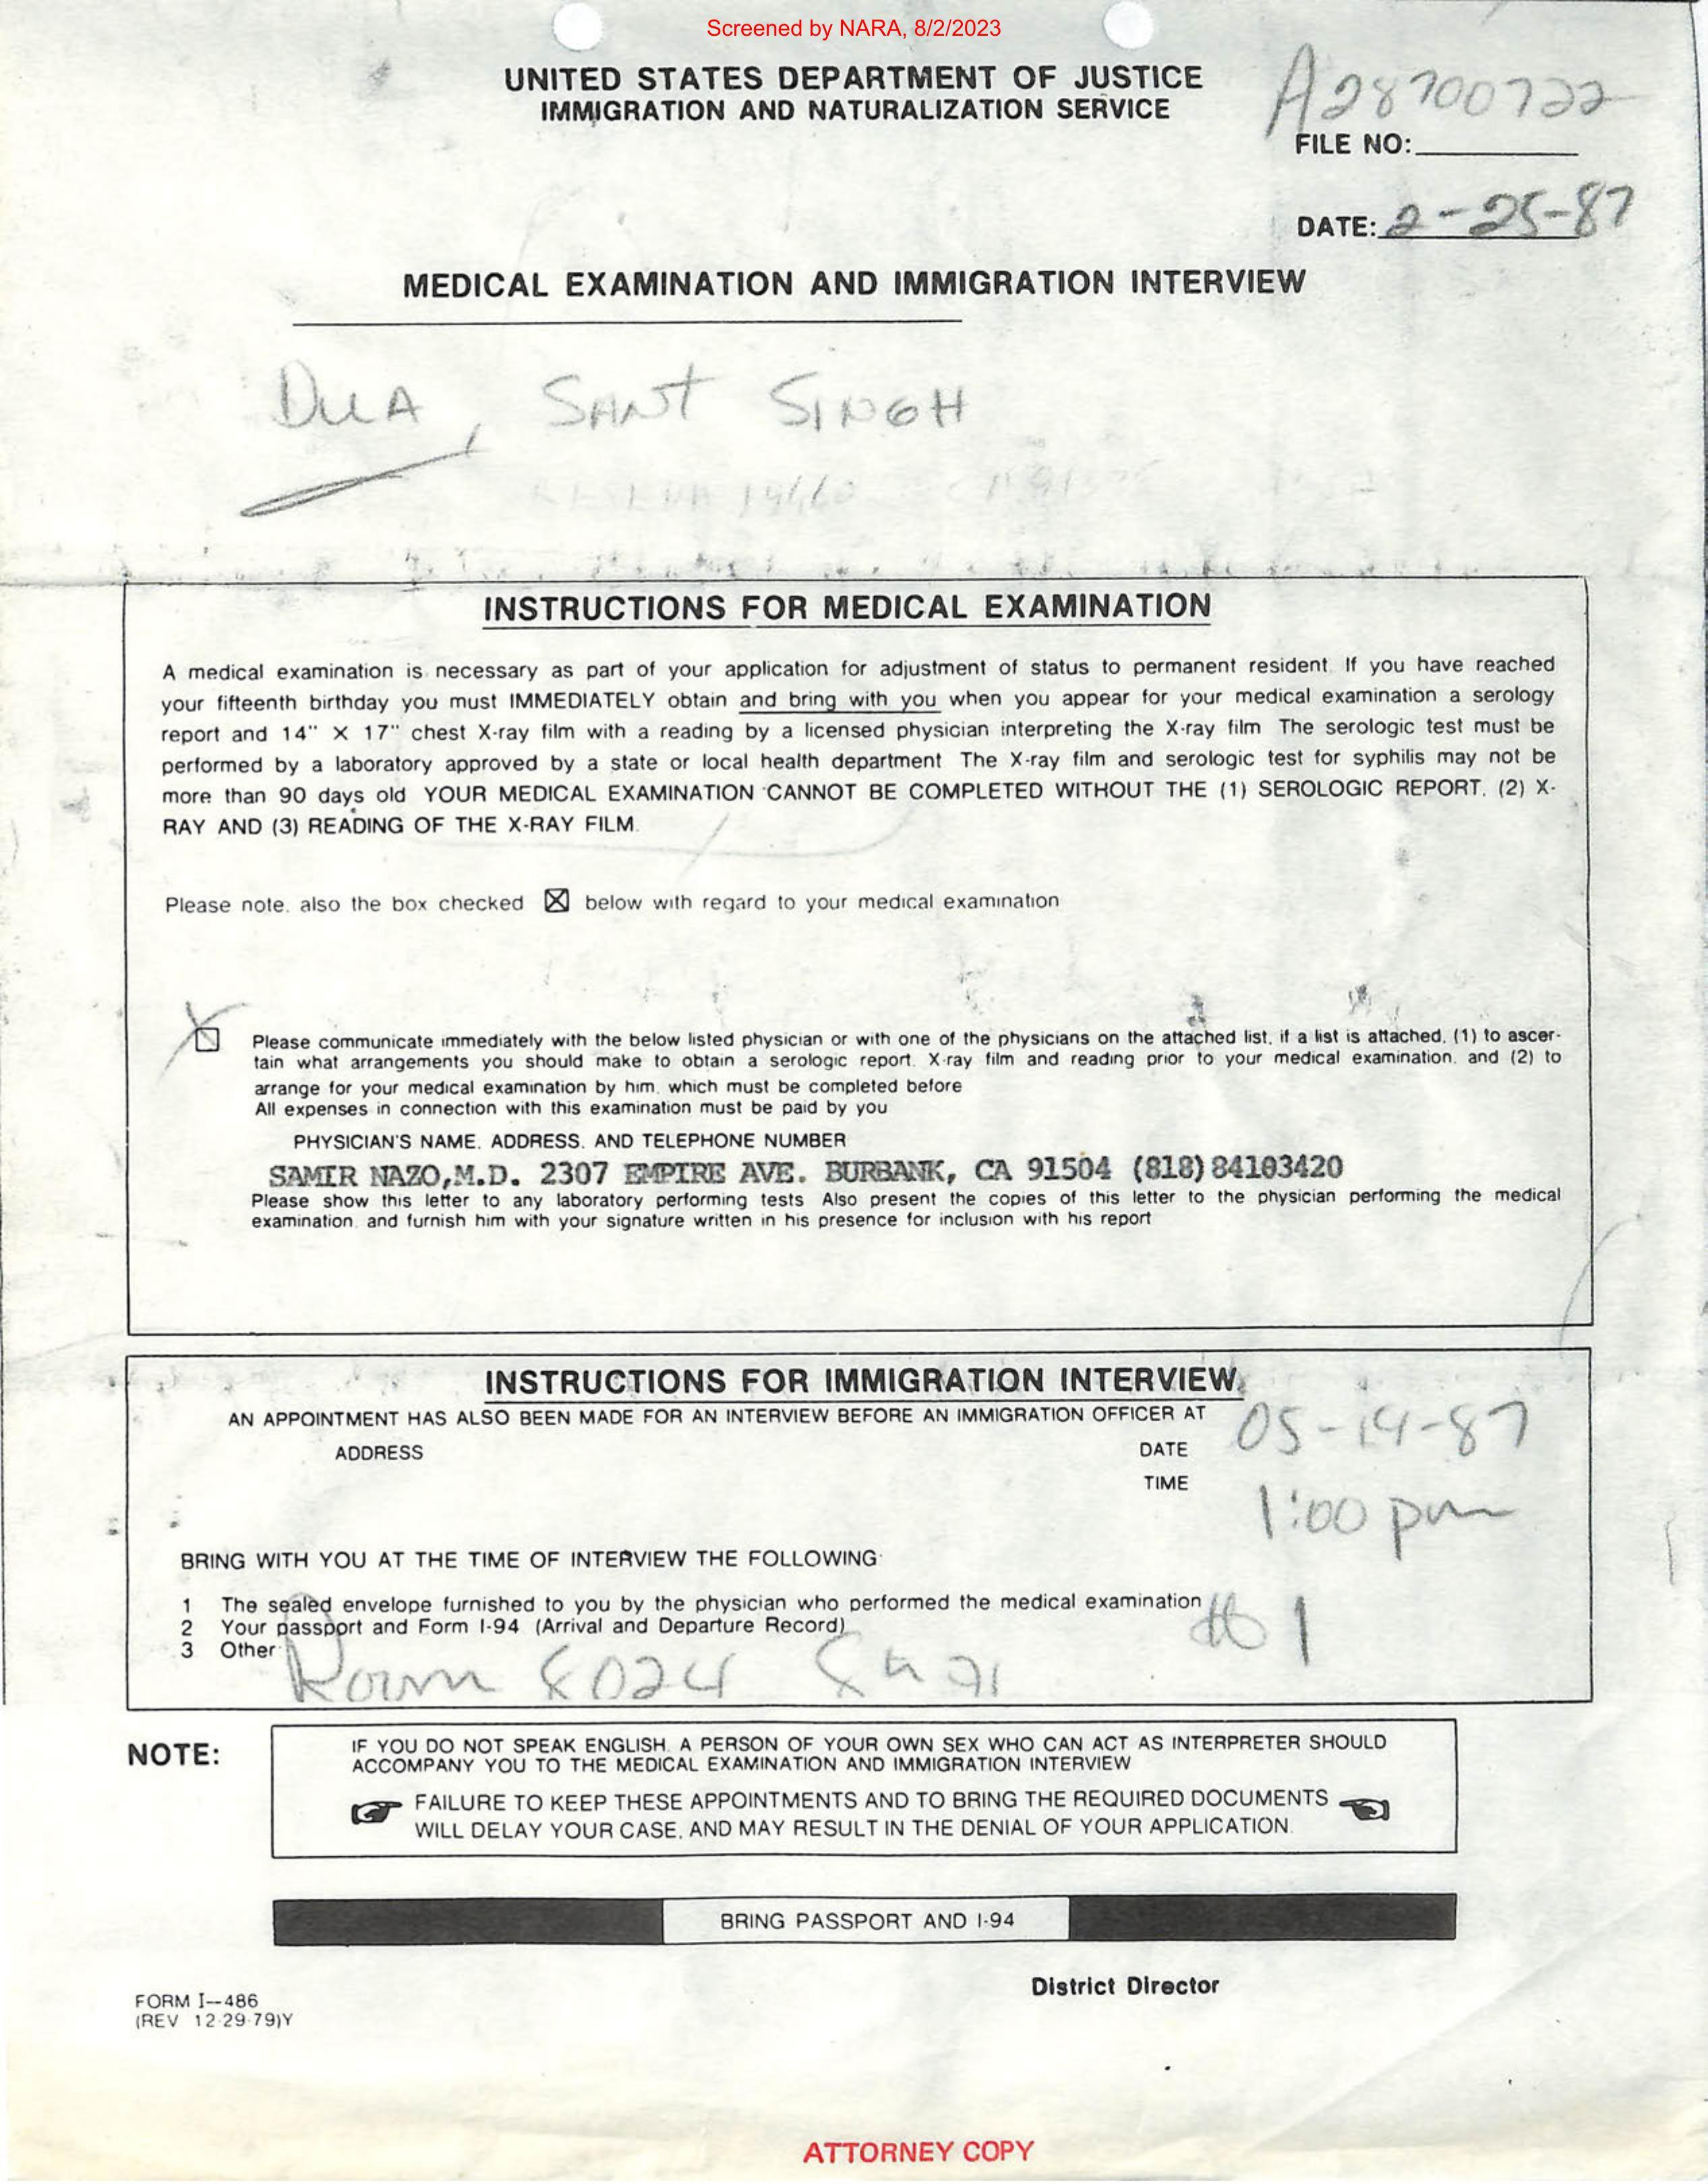 Screened by NARA, 8/2/2023
UNITED STATES DEPARTMENT OF JUSTICE
IMMIGRATION AND NATURALIZATION SERVICE
A28700722
FILE NO:
DATE: 2-25-87
MEDICAL EXAMINATION AND IMMIGRATION INTERVIEW
DUA, SANT SINGH
INSTRUCTIONS FOR MEDICAL EXAMINATION
A medical examination is necessary as part of your application for adjustment of status to permanent resident. If you have reached
your fifteenth birthday you must IMMEDIATELY obtain and bring with you when you appear for your medical examination a serology
report and 14" X 17" chest X-ray film with a reading by a licensed physician interpreting the X-ray film The serologic test must be
performed by a laboratory approved by a state or local health department The X-ray film and serologic test for syphilis may not be
more than 90 days old YOUR MEDICAL EXAMINATION CANNOT BE COMPLETED WITHOUT THE (1) SEROLOGIC REPORT, (2) X-
RAY AND (3) READING OF THE X-RAY FILM.
Please note, also the box checked ☒ below with regard to your medical examination
Please communicate immediately with the below listed physician or with one of the physicians on the attached list, if a list is attached, (1) to ascer-
tain what arrangements you should make to obtain a serologic report. X-ray film and reading prior to your medical examination, and (2) to
arrange for your medical examination by him, which must be completed before
All expenses in connection with this examination must be paid by you
PHYSICIAN'S NAME, ADDRESS, AND TELEPHONE NUMBER
SAMIR NAZO,M.D. 2307 EMPIRE AVE. BURBANK, CA 91504 (818)84103420
Please show this letter to any laboratory performing tests Also present the copies of this letter to the physician performing the medical
examination, and furnish him with your signature written in his presence for inclusion with his report
INSTRUCTIONS FOR IMMIGRATION INTERVIEW
AN APPOINTMENT HAS ALSO BEEN MADE FOR AN INTERVIEW BEFORE AN IMMIGRATION OFFICER AT
ADDRESS
DATE 05-14-87
TIME 1:00 pm
BRING WITH YOU AT THE TIME OF INTERVIEW THE FOLLOWING:
1 The sealed envelope furnished to you by the physician who performed the medical examination
2 Your passport and Form I-94 (Arrival and Departure Record)
3 Other
#1
Room 8024
NOTE:
IF YOU DO NOT SPEAK ENGLISH, A PERSON OF YOUR OWN SEX WHO CAN ACT AS INTERPRETER SHOULD
ACCOMPANY YOU TO THE MEDICAL EXAMINATION AND IMMIGRATION INTERVIEW
FAILURE TO KEEP THESE APPOINTMENTS AND TO BRING THE REQUIRED DOCUMENTS
WILL DELAY YOUR CASE, AND MAY RESULT IN THE DENIAL OF YOUR APPLICATION.
BRING PASSPORT AND I-94
District Director
FORM I--486
(REV 12-29-79)Y
ATTORNEY COPY